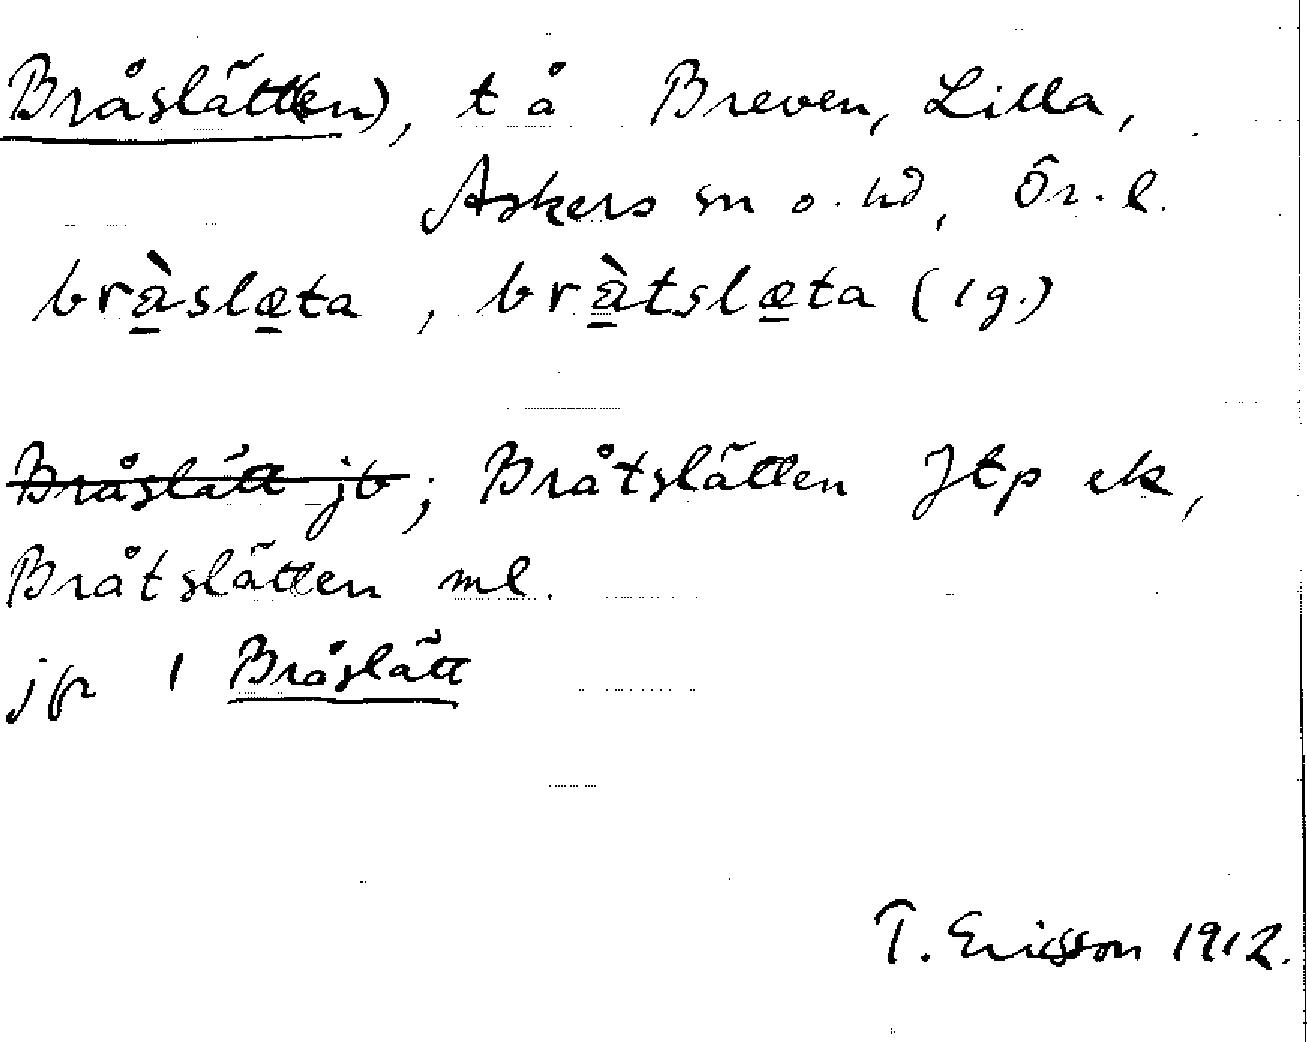 Bråslätt(en), t å Breven, Lilla,
Askers sn o. hd, Ör. l.
brå̀slæta, brå̀tslæta (ig.)
Bråslätt jb; Bråtslätten Jtp ek,
Bråtslätten ml.
jfr 1 Bråslätt
T. Ericsson 1912.